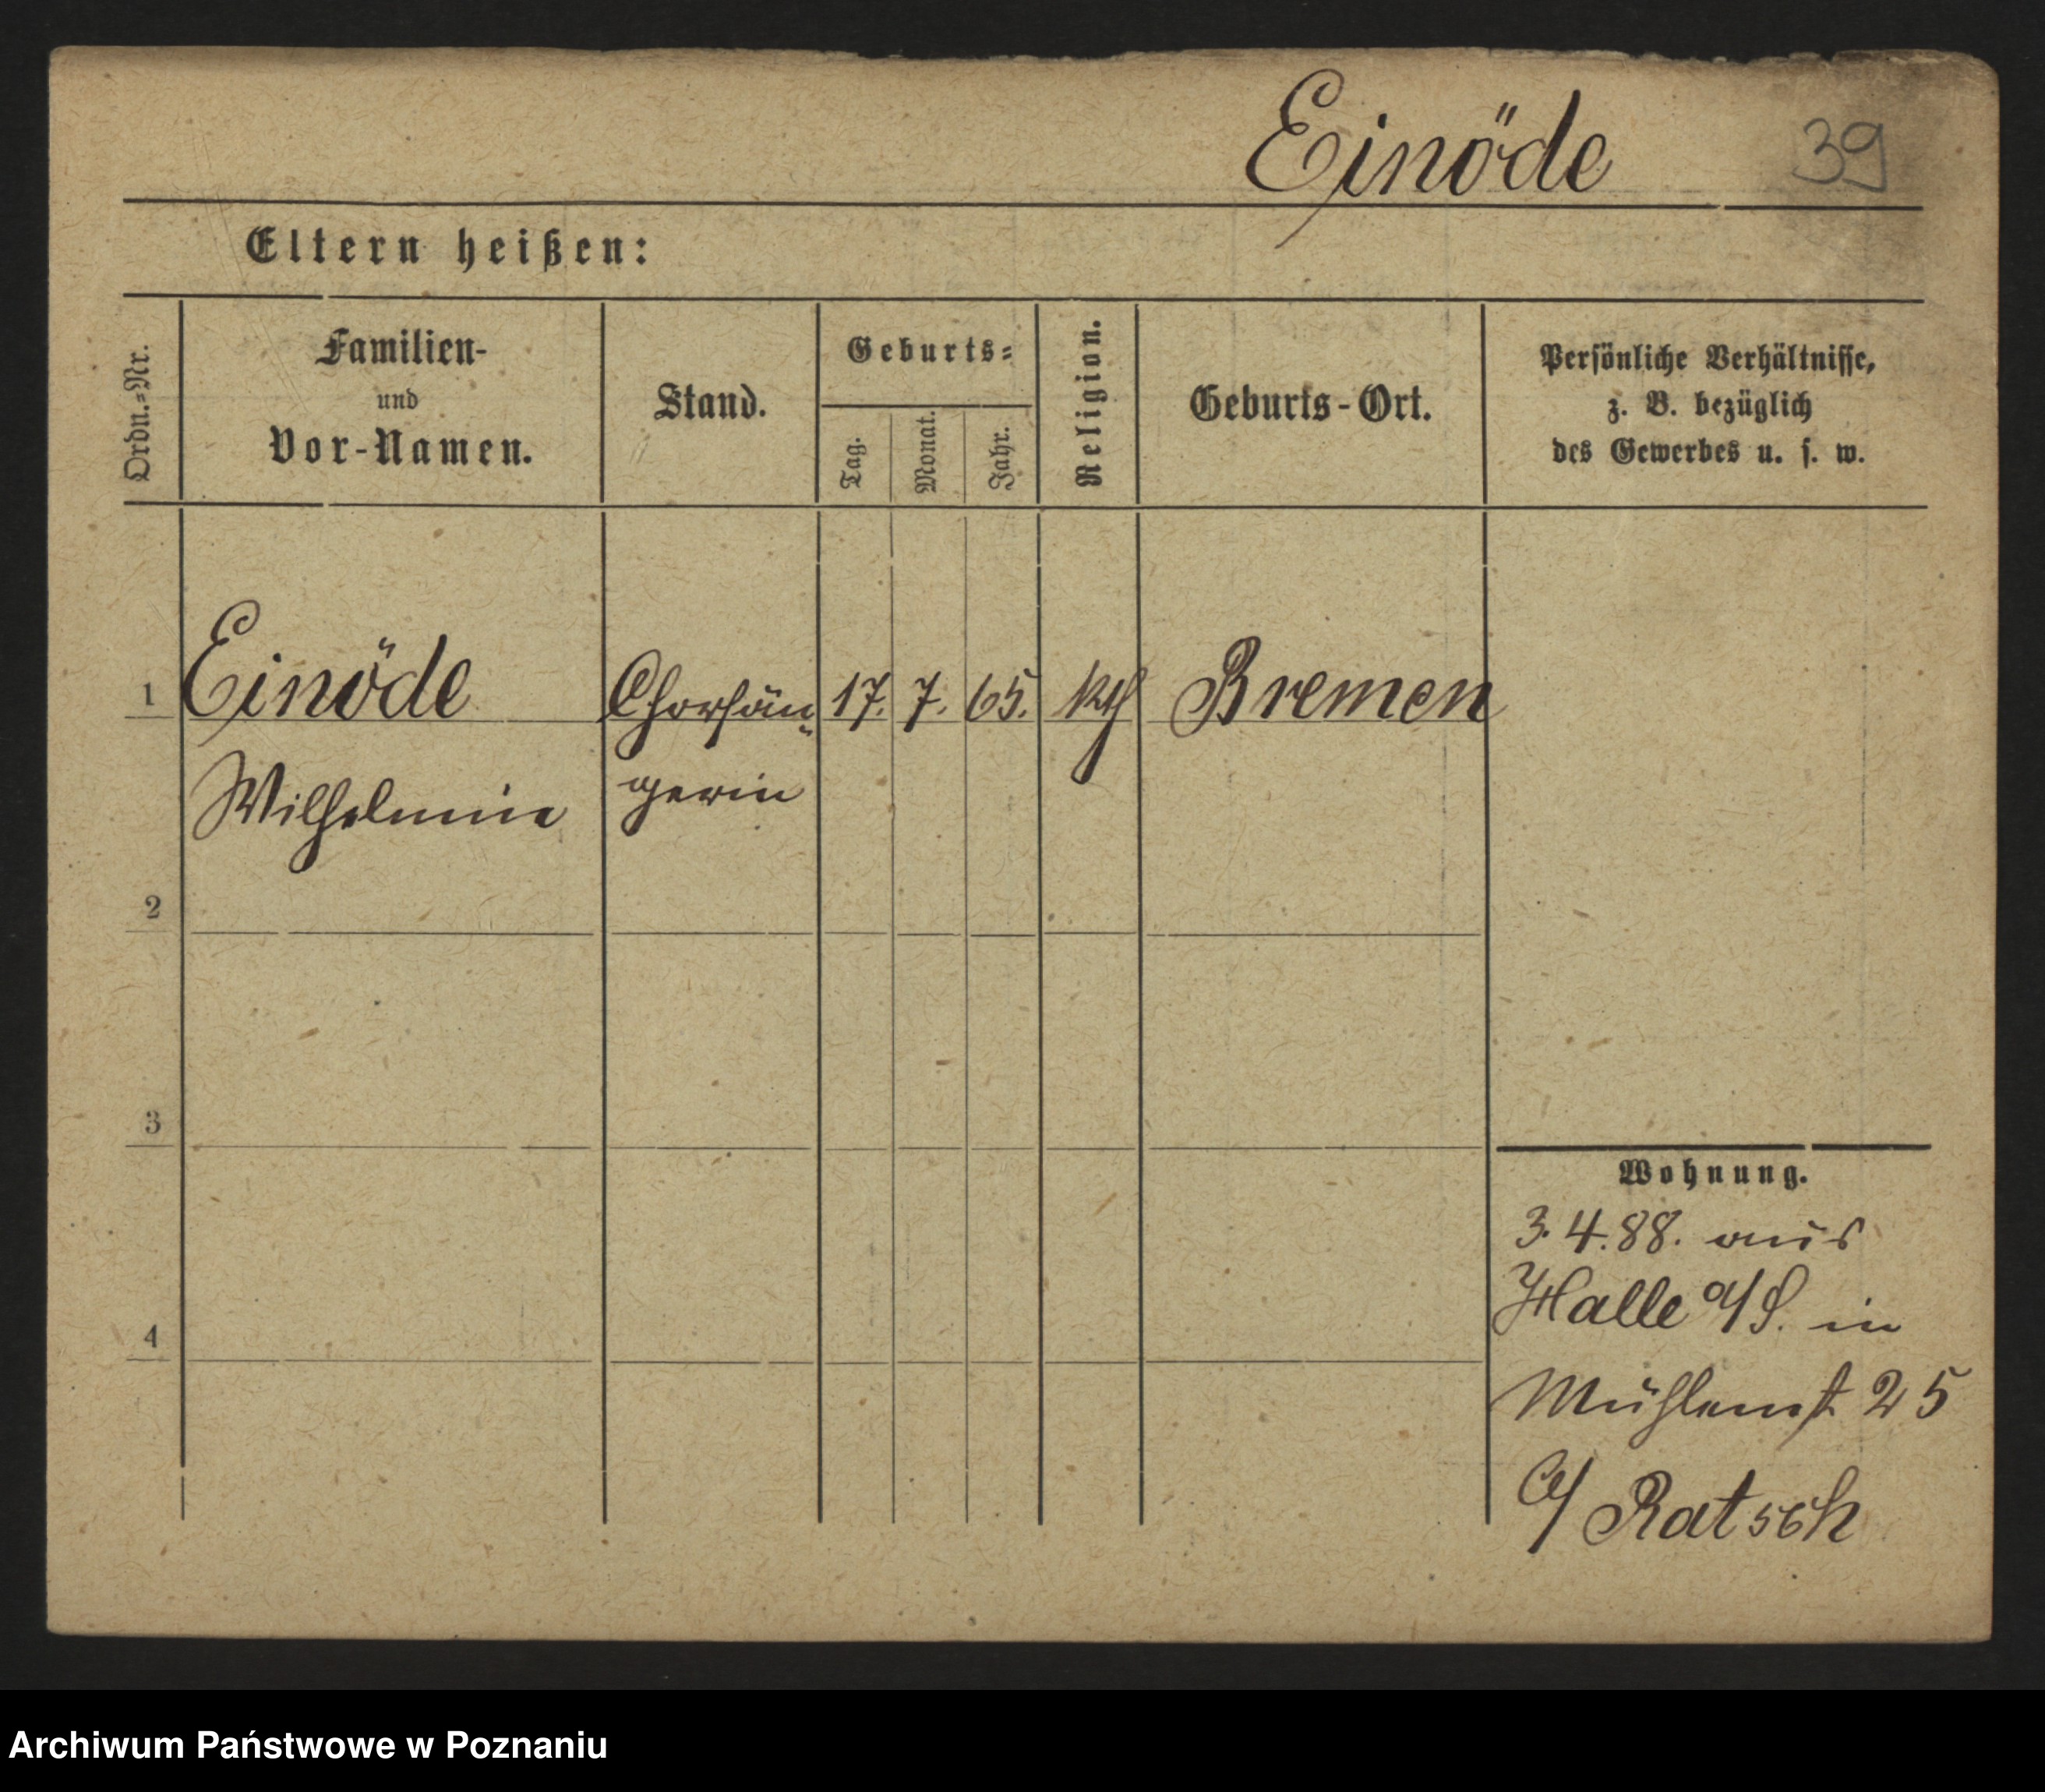 Einöde 39
Eltern heißen:
Ordn.=Nr.
Familien-
und
Vor-Namen.
Stand.
Geburts=
Tag.
Monat.
Jahr.
Religion.
Geburts-Ort.
Persönliche Verhältnisse,
z. B. bezüglich
des Gewerbes u. s. w.
1 Einöde Chorsän= 17. 7. 65. kth Bremen
Wilhelmine gerin
2
3
4
Wohnung.
3.4.88. aus
Halle a/S. in
Mühlenst 25
b/ Ratsch
Archiwum Państwowe w Poznaniu